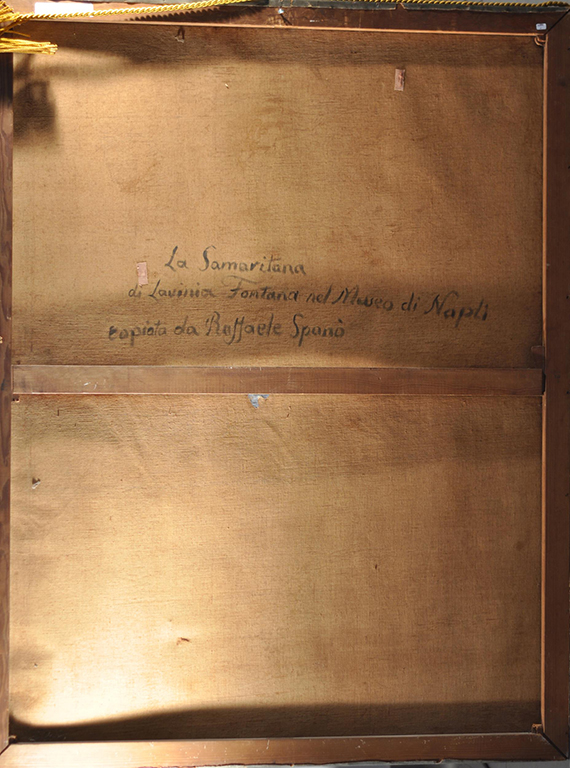 La Samaritana
di Lavinia Fontana nel Museo di Napli
copiata da Raffaele Spanò